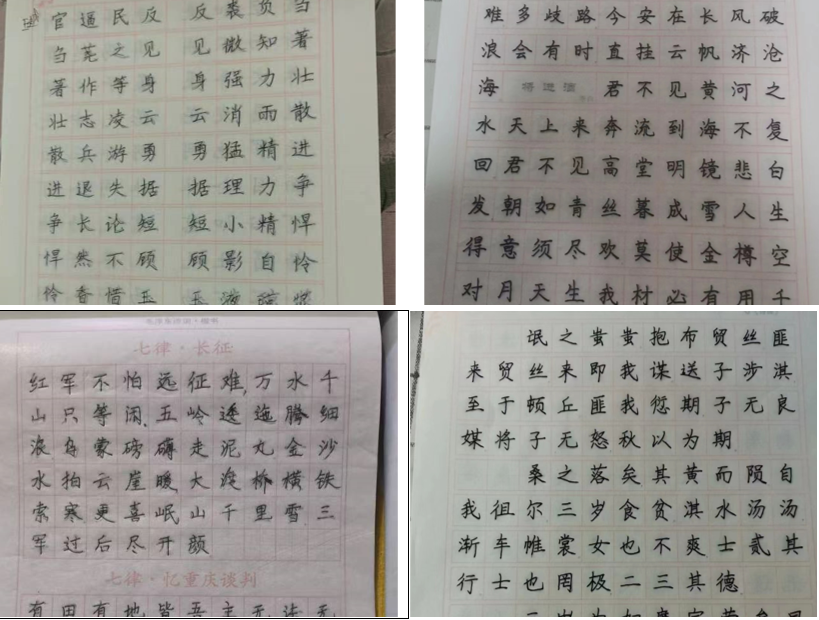 官逼民反 反裘负刍
刍荛之见 见微知著
著作等身 身强力壮
壮志凌云 云消雨散
散兵游勇 勇猛精进
进退失据 据理力争
争长论短 短小精悍
悍然不顾 顾影自怜
怜香惜玉 玉
难多歧路今安在长风破
浪会有时直挂云帆济沧
海 将进酒 君不见黄河之
水天上来奔流到海不复
回君不见高堂明镜悲白
发朝如青丝暮成雪人生
得意须尽欢莫使金樽空
对月天生我材必有用千
七律·长征
红军不怕远征难,万水千
山只等闲、五岭逶迤腾细
浪乌蒙磅礴走泥丸金沙
水拍云崖暖大渡桥横铁
索寒更喜岷山千里雪三
军过后尽开颜
七律·忆重庆谈判
有田有地皆吾主无法无
氓之蚩蚩抱布贸丝匪
来贸丝来即我谋送子涉淇
至于顿丘匪我愆期子无良
媒将子无怒秋以为期
桑之落矣其黄而陨自
我徂尔三岁食贫淇水汤汤
渐车帷裳女也不爽士贰其
行士也罔极二三其德